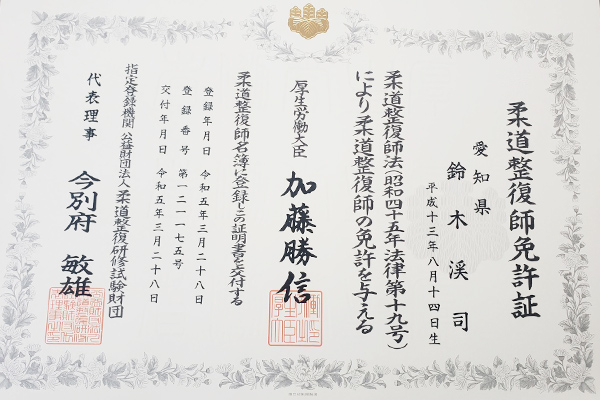 柔道整復師免許証
愛知県
鈴木渓司
平成十三年八月十四日生
柔道整復師法(昭和四十五年法律第十九号)
により柔道整復師の免許を与える
厚生労働大臣 加藤勝信
柔道整復師名簿に登録しこの証明書を交付する
登録年月日 令和五年三月二十八日
登録番号 第一二一一七五号
交付年月日 令和五年三月二十八日
指定登録機関 公益財団法人 柔道整復研修試験財団
代表理事 今別府 敏雄